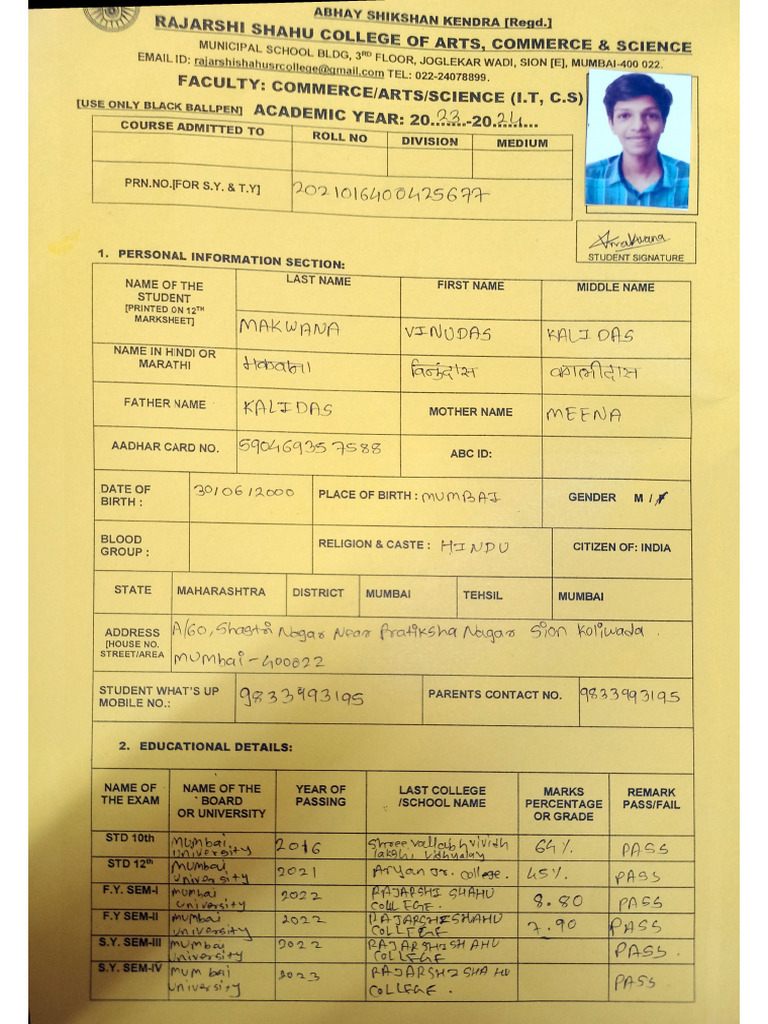 ABHAY SHIKSHAN KENDRA [Regd.]
RAJARSHI SHAHU COLLEGE OF ARTS, COMMERCE & SCIENCE
MUNICIPAL SCHOOL BLDG, 3RD FLOOR, JOGLEKAR WADI, SION [E], MUMBAI-400 022.
EMAIL ID: rajarshishahusrcollege@gmail.com TEL: 022-24078899.
FACULTY: COMMERCE/ARTS/SCIENCE (I.T, C.S)
[USE ONLY BLACK BALLPEN] ACADEMIC YEAR: 20...23...-20...24......
COURSE ADMITTED TO ROLL NO DIVISION MEDIUM
PRN.NO.[FOR S.Y. & T.Y] 2021016400425677
STUDENT SIGNATURE
1. PERSONAL INFORMATION SECTION:
NAME OF THE STUDENT [PRINTED ON 12TH MARKSHEET] LAST NAME FIRST NAME MIDDLE NAME
MAKWANA VINUDAS KALIDAS
NAME IN HINDI OR MARATHI मकवाना विनुदास कालीदास
FATHER NAME KALIDAS MOTHER NAME MEENA
AADHAR CARD NO. 590469357588 ABC ID:
DATE OF BIRTH : 30/06/2000 PLACE OF BIRTH : MUMBAI GENDER M / F
BLOOD GROUP : RELIGION & CASTE : HINDU CITIZEN OF: INDIA
STATE MAHARASHTRA DISTRICT MUMBAI TEHSIL MUMBAI
ADDRESS [HOUSE NO. STREET/AREA A/60, Shastri Nagar Near Pratiksha Nagar Sion Koliwada.
Mumbai-400022
STUDENT WHAT'S UP MOBILE NO.: 9833993195 PARENTS CONTACT NO. 9833993195
2. EDUCATIONAL DETAILS:
NAME OF THE EXAM NAME OF THE BOARD OR UNIVERSITY YEAR OF PASSING LAST COLLEGE /SCHOOL NAME MARKS PERCENTAGE OR GRADE REMARK PASS/FAIL
STD 10th Mumbai University 2016 Shree vallabh vividh lakshi vidhyalay 64% PASS
STD 12th Mumbai University 2021 Aryan Jr. college. 45% PASS
F.Y. SEM-I Mumbai University 2022 RAJARSHI SHAHU COLLEGE. 8.80 PASS
F.Y SEM-II Mumbai University 2022 RAJARSHI SHAHU COLLEGE 7.90 PASS
S.Y. SEM-III Mumbai University 2022 RAJARSHI SHAHU COLLEGE PASS.
S.Y. SEM-IV Mumbai University 2023 RAJARSHI SHAHU COLLEGE. PASS